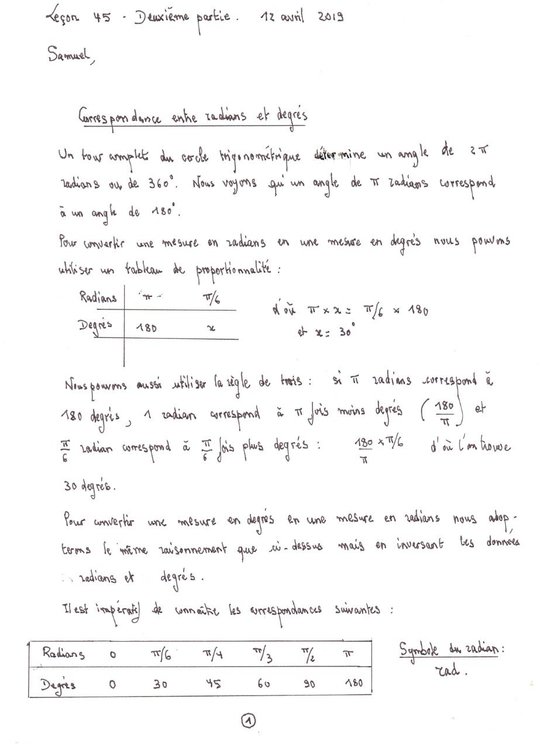 Leçon 45 - Deuxième partie. 12 avril 2019
Samuel,
Correspondance entre radians et degrés
Un tour complet du cercle trigonométrique détermine un angle de 2π
radians ou de 360°. Nous voyons qu'un angle de π radians correspond
à un angle de 180°.
Pour convertir une mesure en radians en une mesure en degrés nous pouvons
utiliser un tableau de proportionnalité :
Radians π π/6 d'où π × x = π/6 × 180
Degrés 180 x et x = 30°
Nous pouvons aussi utiliser la règle de trois : si π radians correspond à
180 degrés, 1 radian correspond à π fois moins degrés (180/π) et
π/6 radian correspond à π/6 fois plus degrés : 180/π × π/6 d'où l'on trouve
30 degrés.
Pour convertir une mesure en degrés en une mesure en radians nous adop-
terons le même raisonnement que ci-dessus mais en inversant les données
radians et degrés.
Il est impératif de connaître les correspondances suivantes :
Radians 0 π/6 π/4 π/3 π/2 π
Degrés 0 30 45 60 90 180
Symbole du radian :
rad.
1